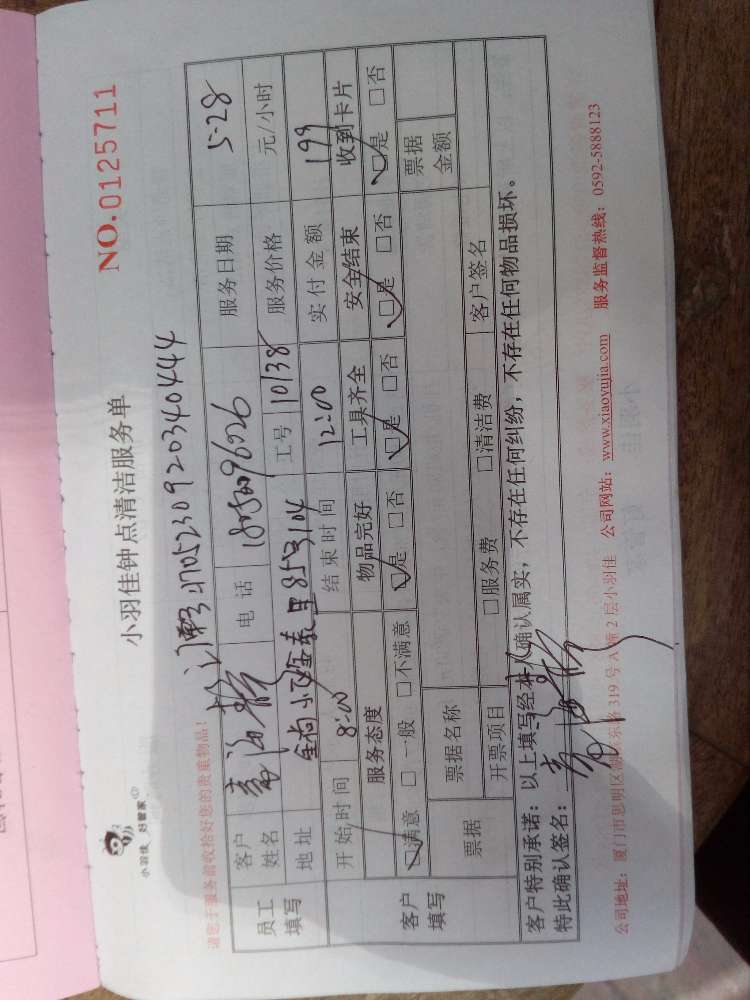 小羽佳 好管家
小羽佳钟点清洁服务单
NO.0125711
请您于服务前收拾好您的贵重物品!
4705230920340444
员工填写
客户姓名
电话
服务日期 5-28
地址
工号 10138
服务价格 元/小时
开始时间 8:00
结束时间 12:00
实付金额 199
客户填写
服务态度 物品完好 工具齐全 安全结束 收到卡片
☑满意 □一般 □不满意 ☑是 □否 ☑是 □否 ☑是 □否 ☑是 □否
票据
票据名称
票据金额
开票项目 □服务费 □清洁费 客户签名
客户特别承诺:以上填写经本人确认属实,不存在任何纠纷,不存在任何物品损坏。
特此确认签名:
公司地址:厦门市思明区湖滨东路 319 号 A 幢 2 层小羽佳 公司网站:www.xiaoyujia.com 服务监督热线:0592-5888123